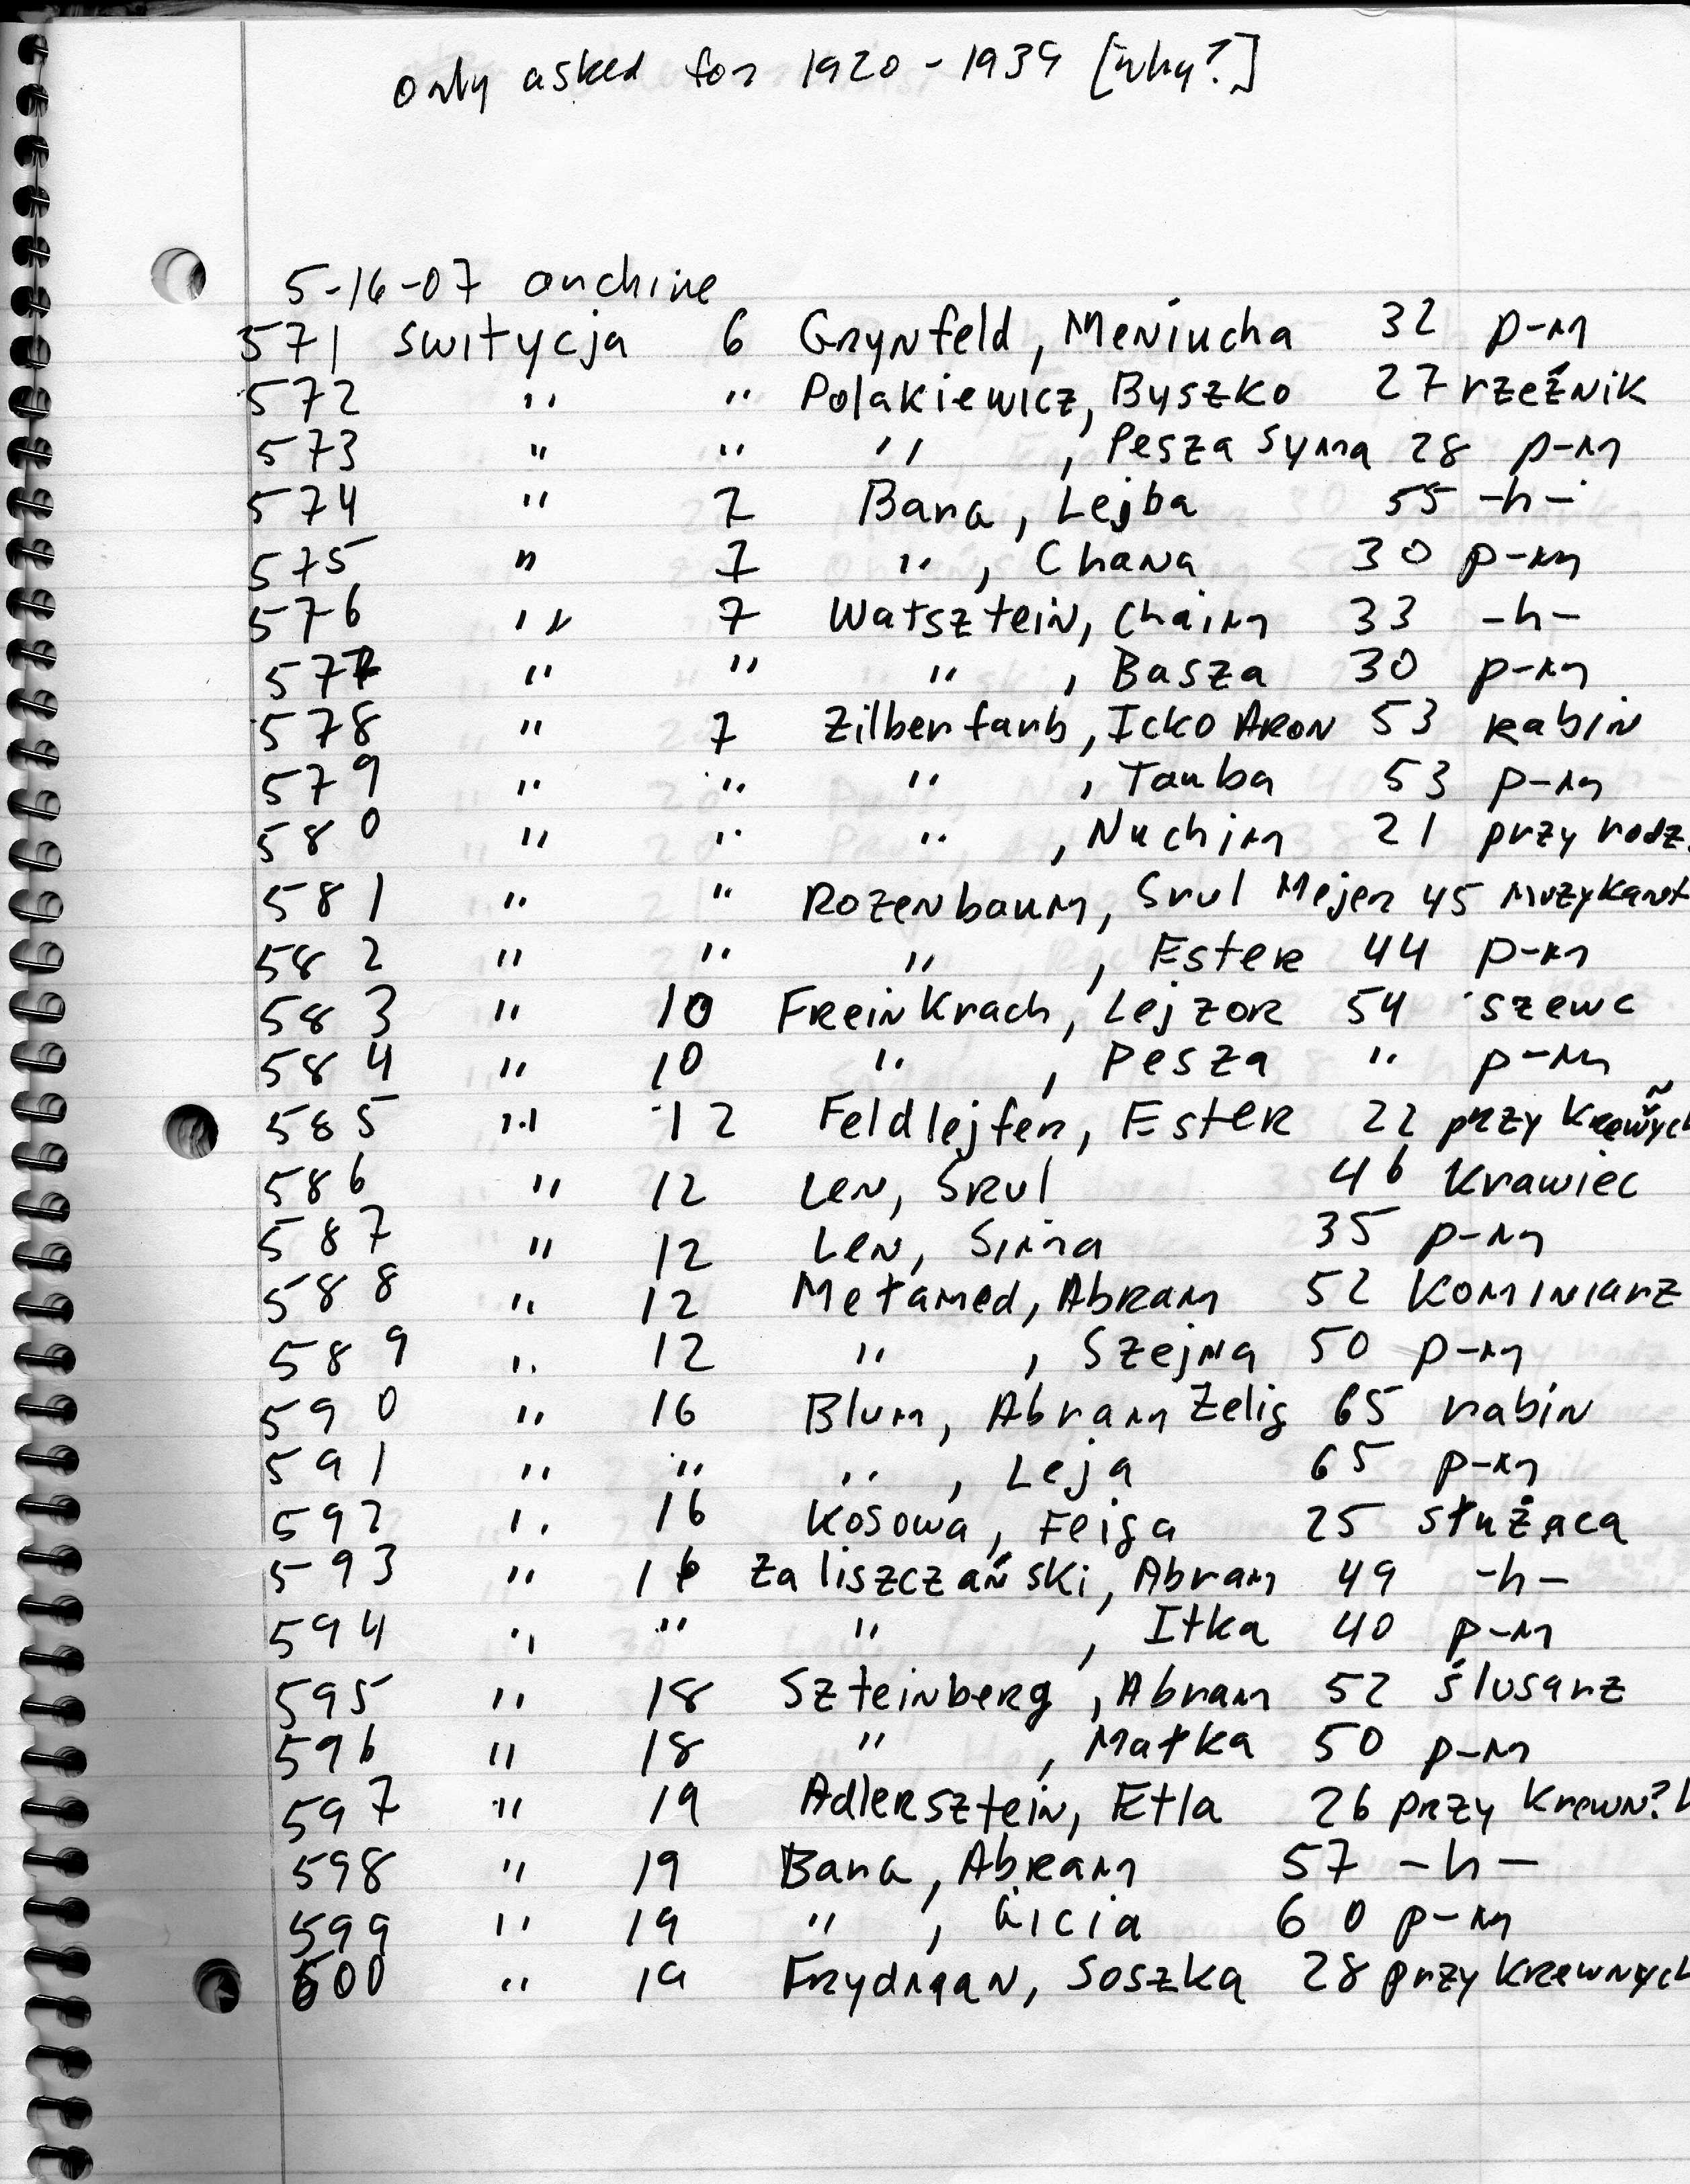 only asked for 1920-1939 [why?]
5-16-07 archive
571 switycja 6 Grynfeld, Meniucha 32 p-m
572 " " Polakiewicz, Byszko 27 rzeźnik
573 " " " , Pesza Syma 28 p-m
574 " 7 Bara, Lejba 55 -h-
575 " 7 " , Chana 30 p-m
576 " 7 Watsztein, Chaim 33 -h-
577 " " " , Basza 30 p-m
578 " 7 Zilberfarb, Icko Aron 53 rabin
579 " " " , Tauba 53 p-m
580 " " " , Nuchim 21 przy rodz.
581 " " Rozenbaum, Srul Mejer 45 muzykant
582 " " " , Ester 44 p-m
583 " 10 Freinkrach, Lejzor 54 szewc
584 " 10 " , Pesza " p-m
585 " 12 Feldlejfer, Ester 22 przy
586 " 12 Len, Srul 46 krawiec
587 " 12 Len, Sima 35 p-m
588 " 12 Metamed, Abram 52 kominiarz
589 " 12 " , Szejna 50 p-m
590 " 16 Blum, Abram Zelig 65 rabin
591 " " " , Leja 65 p-m
592 " 16 Kosowa, Feiga 25 służaca
593 " 16 Zaliszczański, Abram 49 -h-
594 " " " , Itka 40 p-m
595 " 18 Szteinberg, Abram 52 ślusarz
596 " 18 " , Matka 50 p-m
597 " 19 Adlersztein, Etla 26 przy krewn?
598 " 19 Bara, Abram 57 -h-
599 " 19 " , 60 p-m
600 " 19 Frydman, Soszka 28 przy krewnych